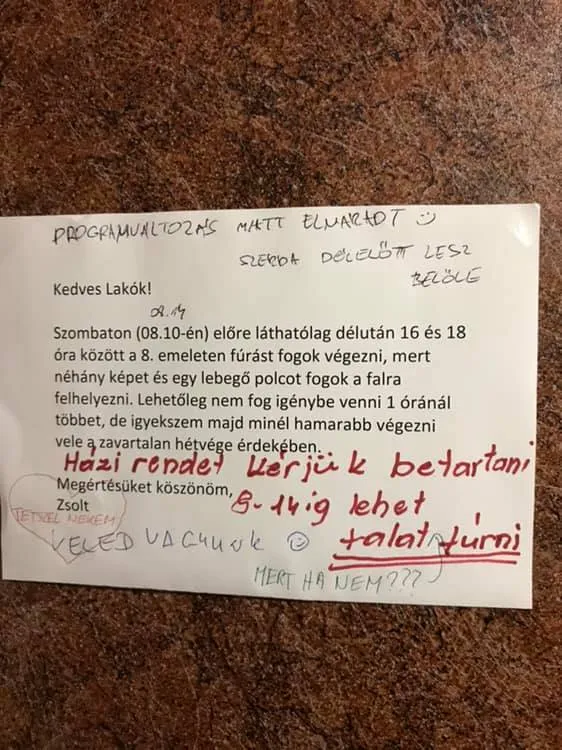 PROGRAMVÁLTOZÁS MIATT ELMARADT
SZERDA DÉLELŐTT LESZ
BELŐLE
Kedves Lakók!
08.14
Szombaton (08.10-én) előre láthatólag délután 16 és 18
óra között a 8. emeleten fúrást fogok végezni, mert
néhány képet és egy lebegő polcot fogok a falra
felhelyezni. Lehetőleg nem fog igénybe venni 1 óránál
többet, de igyekszem majd minél hamarabb végezni
vele a zavartalan hétvége érdekében.
Házi rendet kérjük betartani
Megértésüket köszönöm,
8-14ig lehet
Zsolt
TETSZEL NEKEM
VELED VAGYUNK
talat fúrni
MERT HA NEM???